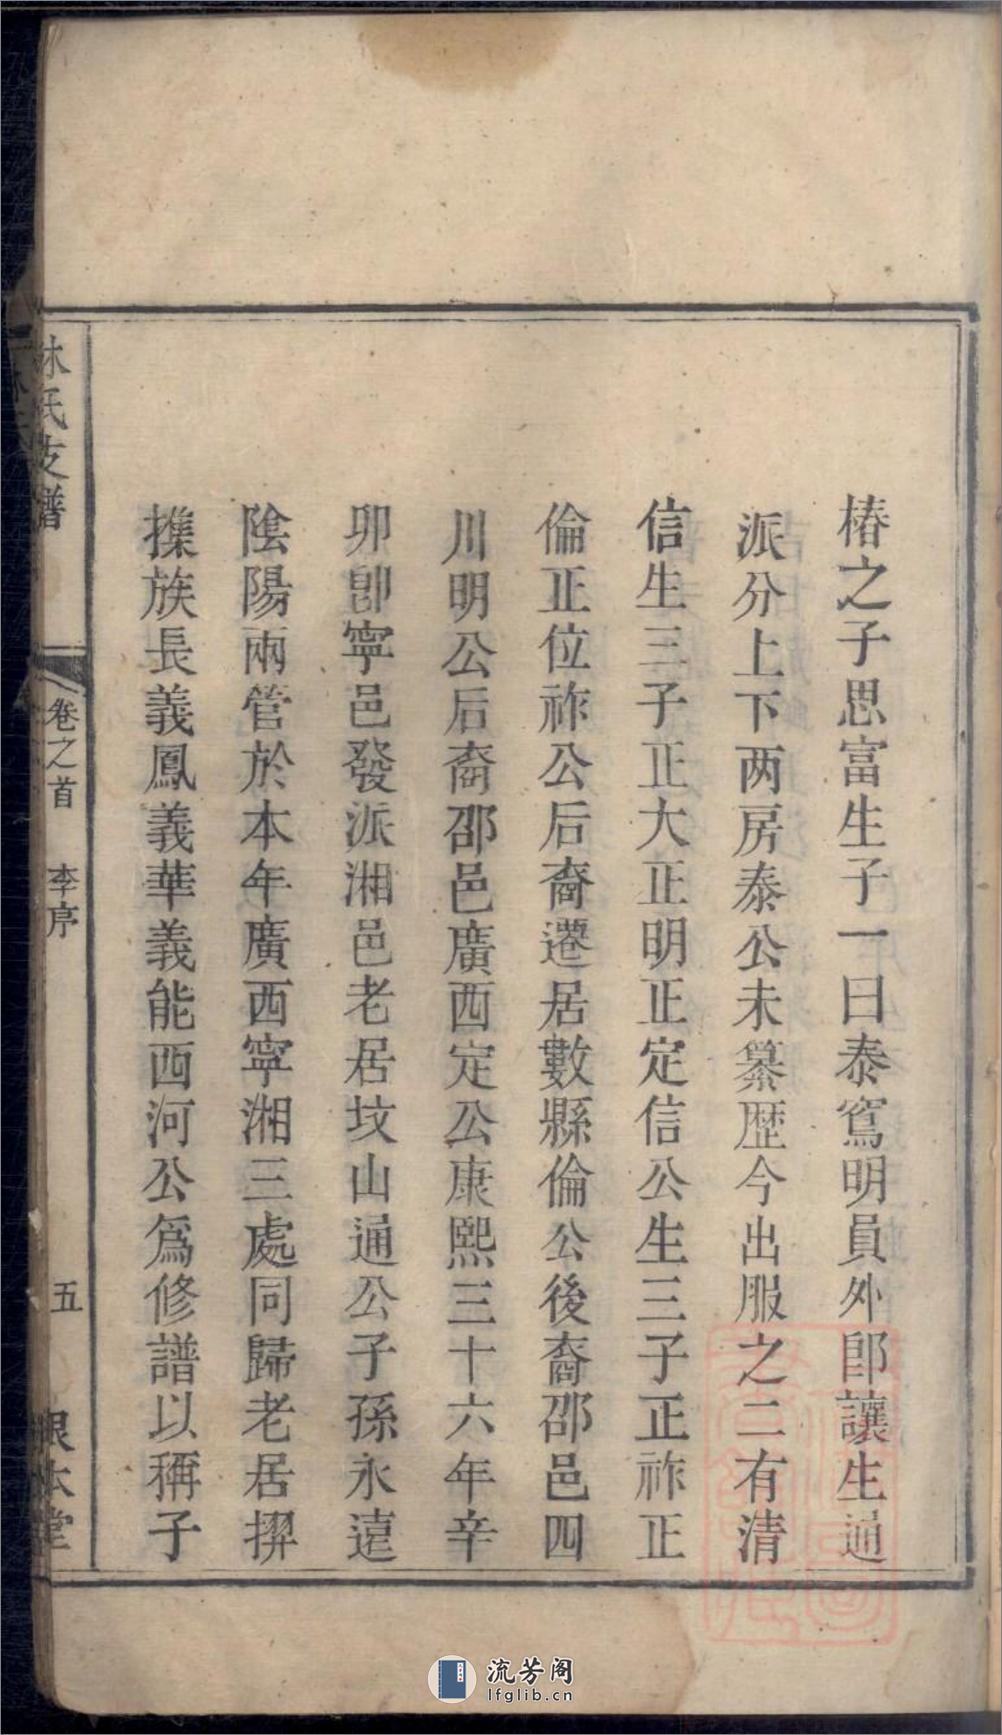 椿之子思富生子一曰泰寫明員外郎讓生通
派分上下两房泰公未纂歷今出服之二有清
信生三子正大正明正定信公生三子正祚正
倫正位祚公后裔遷居數縣倫公後裔邵邑四
川明公后裔邵邑廣西定公康熙三十六年辛
卯卽寧邑發派湘邑老居坟山通公子孫永遠
陰陽兩管於本年廣西寧湘三處同歸老居擇
擕族長義鳳義華義能西河公爲修譜以稱子
林氏支譜
卷之首
李序
五
根本堂
流芳阁
lfglib.cn